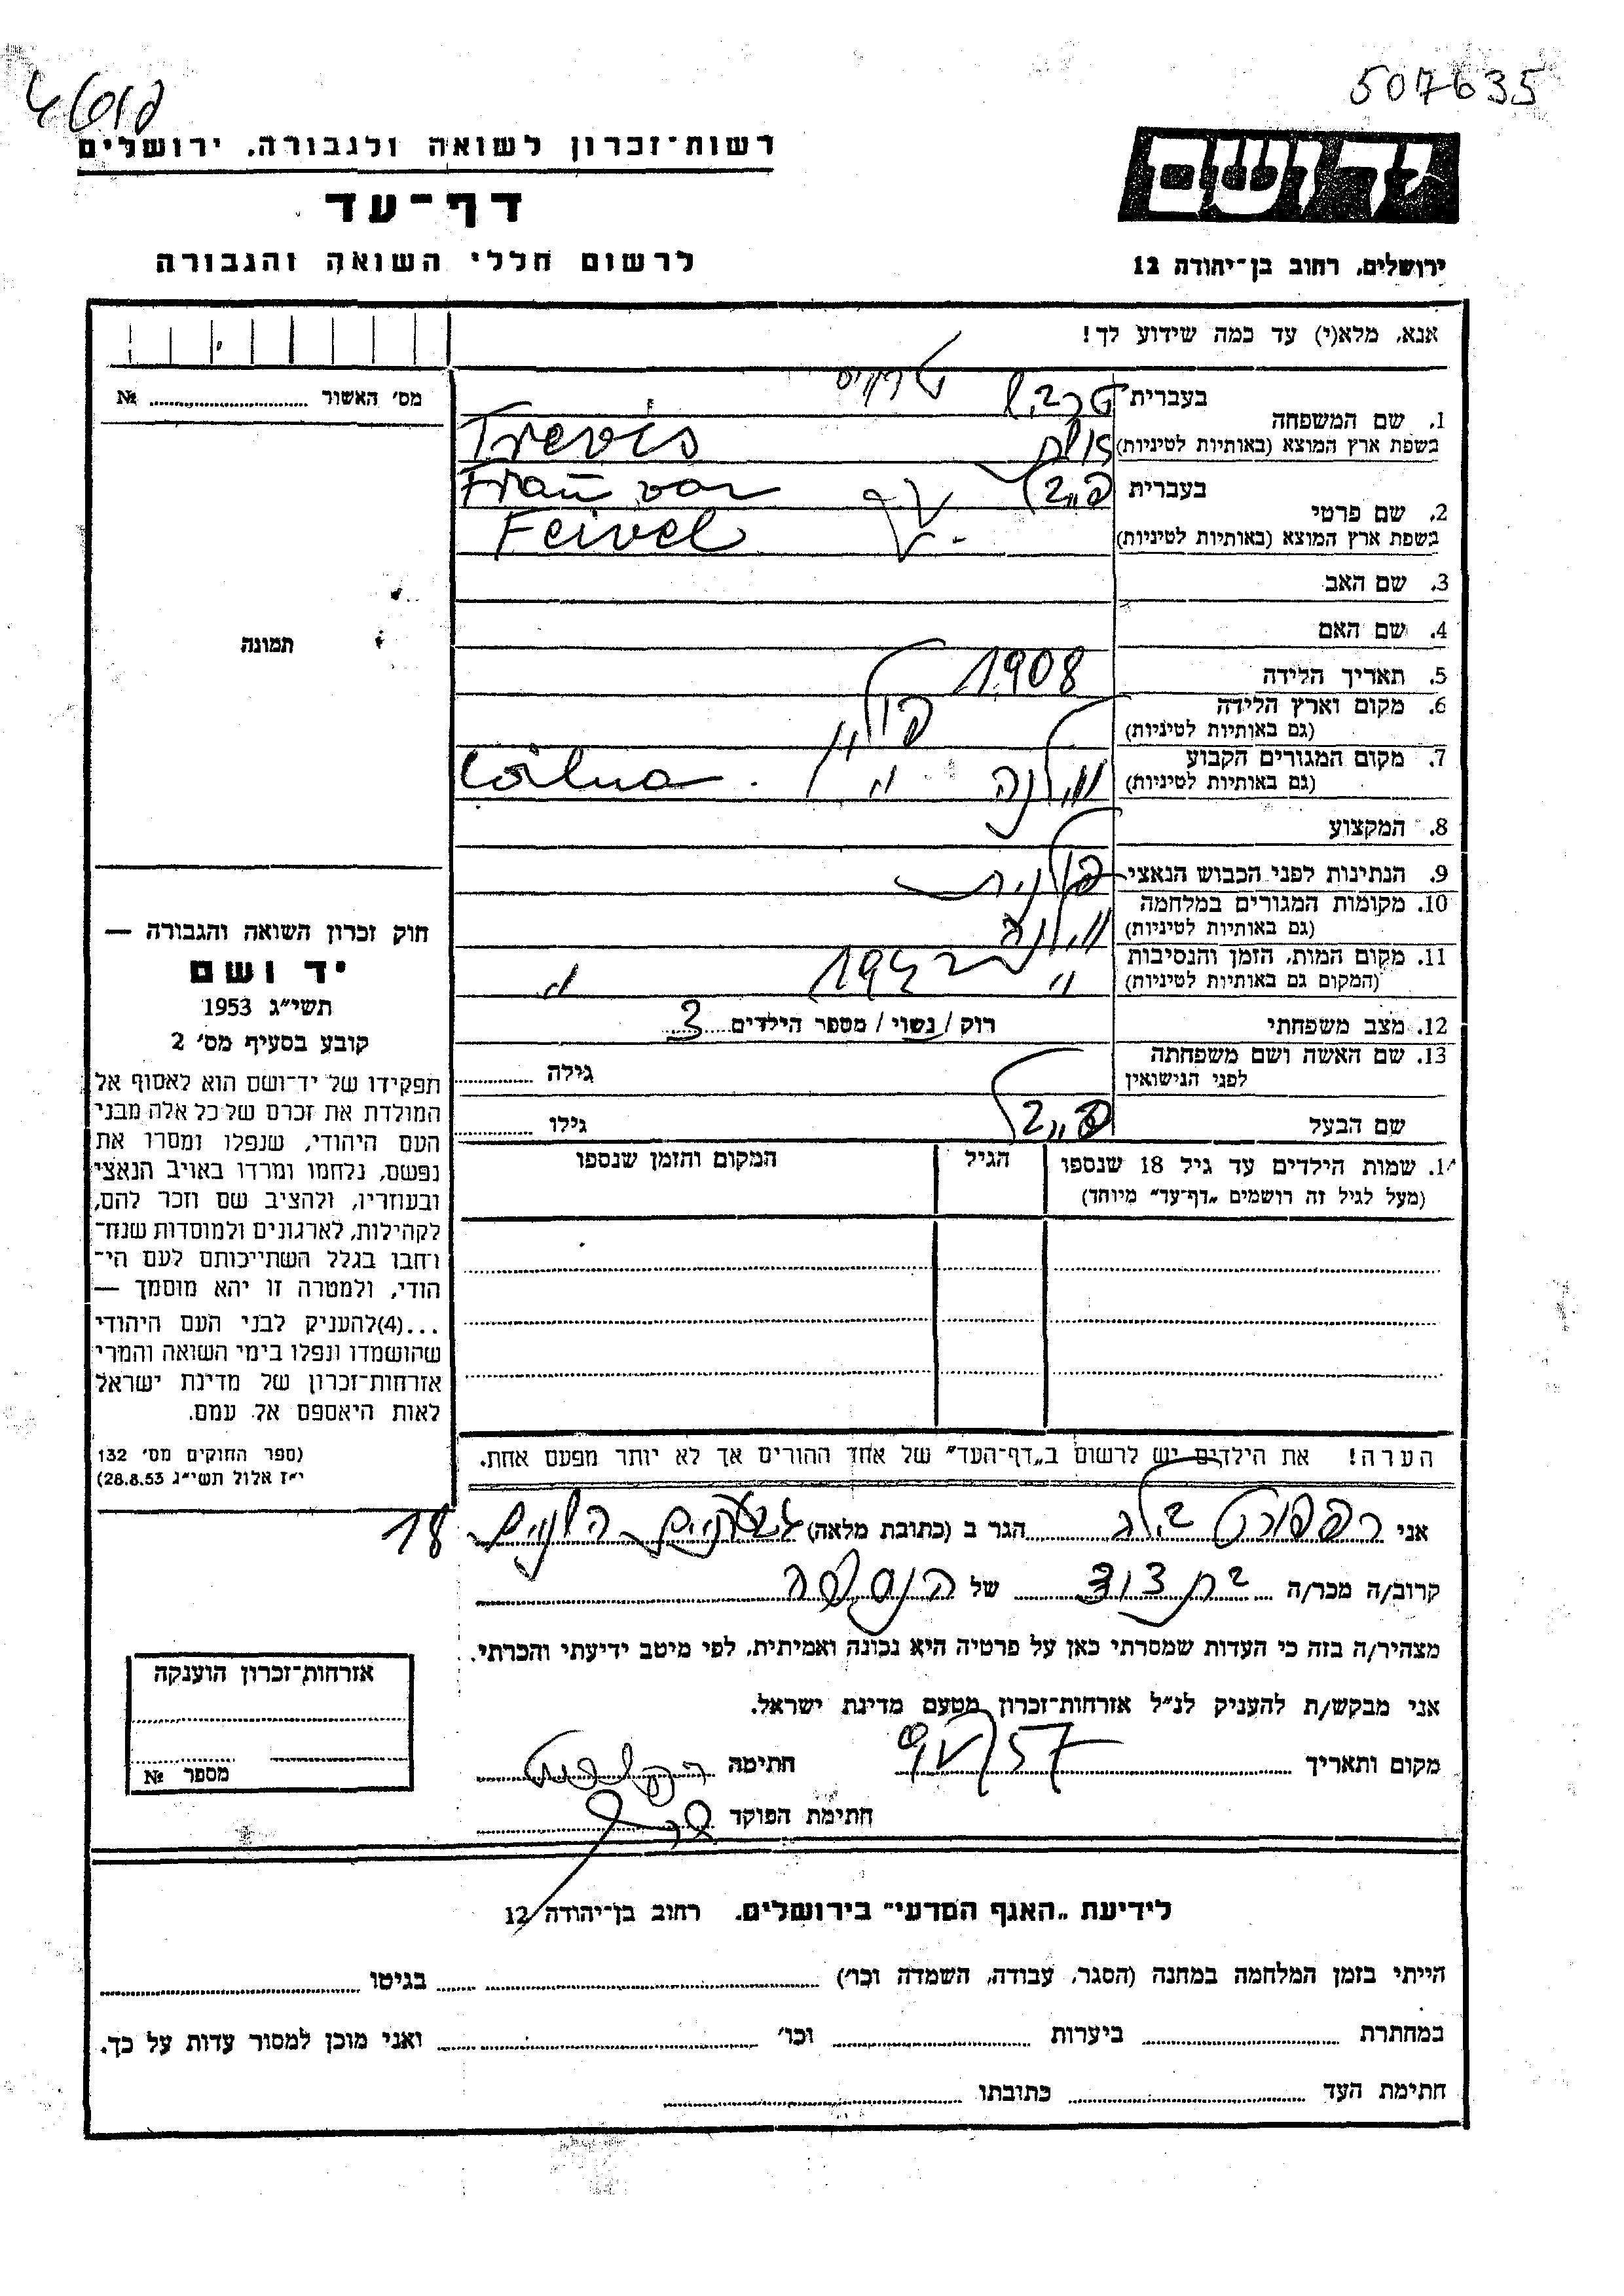 507635
רשות־זכרון לשואה ולגבורה, ירושלים
דף־עד
לרשום חללי השואה והגבורה
ידושם
ירושלים, רחוב בן־יהודה 12
אנא, מלא(י) עד כמה שידוע לך!
מס׳ האשור № 
1. שם המשפחה
בעברית
בשפת ארץ המוצא (באותיות לטיניות) Trevis
2. שם פרטי
בעברית
Frau von
בשפת ארץ המוצא (באותיות לטיניות) Feivel
3. שם האב
4. שם האם
תמונה
5. תאריך הלידה 1908
6. מקום וארץ הלידה
(גם באותיות לטיניות) פולין
7. מקום המגורים הקבוע
(גם באותיות לטיניות) וילנה
8. המקצוע
9. הנתינות לפני הכבוש הנאצי פולנית
10. מקומות המגורים במלחמה
(גם באותיות לטיניות) וילנה
11. מקום המות, הזמן והנסיבות
(המקום גם באותיות לטיניות) " 1942 "
12. מצב משפחתי רוק / נשוי / מספר הילדים 3
13. שם האשה ושם משפחתה
לפני הנישואין גילה
שם הבעל גילו
14. שמות הילדים עד גיל 18 שנספו
(מעל לגיל זה רושמים „דף־עד״ מיוחד)
הגיל
המקום והזמן שנספו
חוק זכרון השואה והגבורה —
יד ושם
תשי״ג 1953
קובע בסעיף מס׳ 2
תפקידו של יד־ושם הוא לאסוף אל
המולדת את זכרם של כל אלה מבני
העם היהודי, שנפלו ומסרו את
נפשם, נלחמו ומרדו באויב הנאצי
ובעוזריו, ולהציב שם וזכר להם,
לקהילות, לארגונים ולמוסדות שנח־
רחבו בגלל השתייכותם לעם הי־
הודי, ולמטרה זו יהא מוסמך —
...(4)להעניק לבני העם היהודי
שהושמדו ונפלו בימי השואה והמרי
אזרחות־זכרון של מדינת ישראל
לאות היאספם אל עמם.
(ספר החוקים מס׳ 132
י״ז אלול תשי״ג 28.8.53)
הערה! את הילדים יש לרשום ב„דף־העד״ של אחד ההורים אך לא יותר מפעם אחת.
אני הגר ב (כתובת מלאה) 18
קרוב/ה מכר/ה בת דוד של הנספה
מצהיר/ה בזה כי העדות שמסרתי כאן על פרטיה היא נכונה ואמיתית, לפי מיטב ידיעתי והכרתי.
אני מבקש/ת להעניק לנ״ל אזרחות־זכרון מטעם מדינת ישראל.
מקום ותאריך חתימה
חתימת הפוקד
אזרחות־זכרון הוענקה
מספר №
לידיעת „האגף המדעי״ בירושלים, רחוב בן־יהודה 12
הייתי בזמן המלחמה במחנה (הסגר, עבודה, השמדה וכו׳) בגיטו
במחתרת ביערות וכו׳ ואני מוכן למסור עדות על כך.
חתימת העד כתובתו